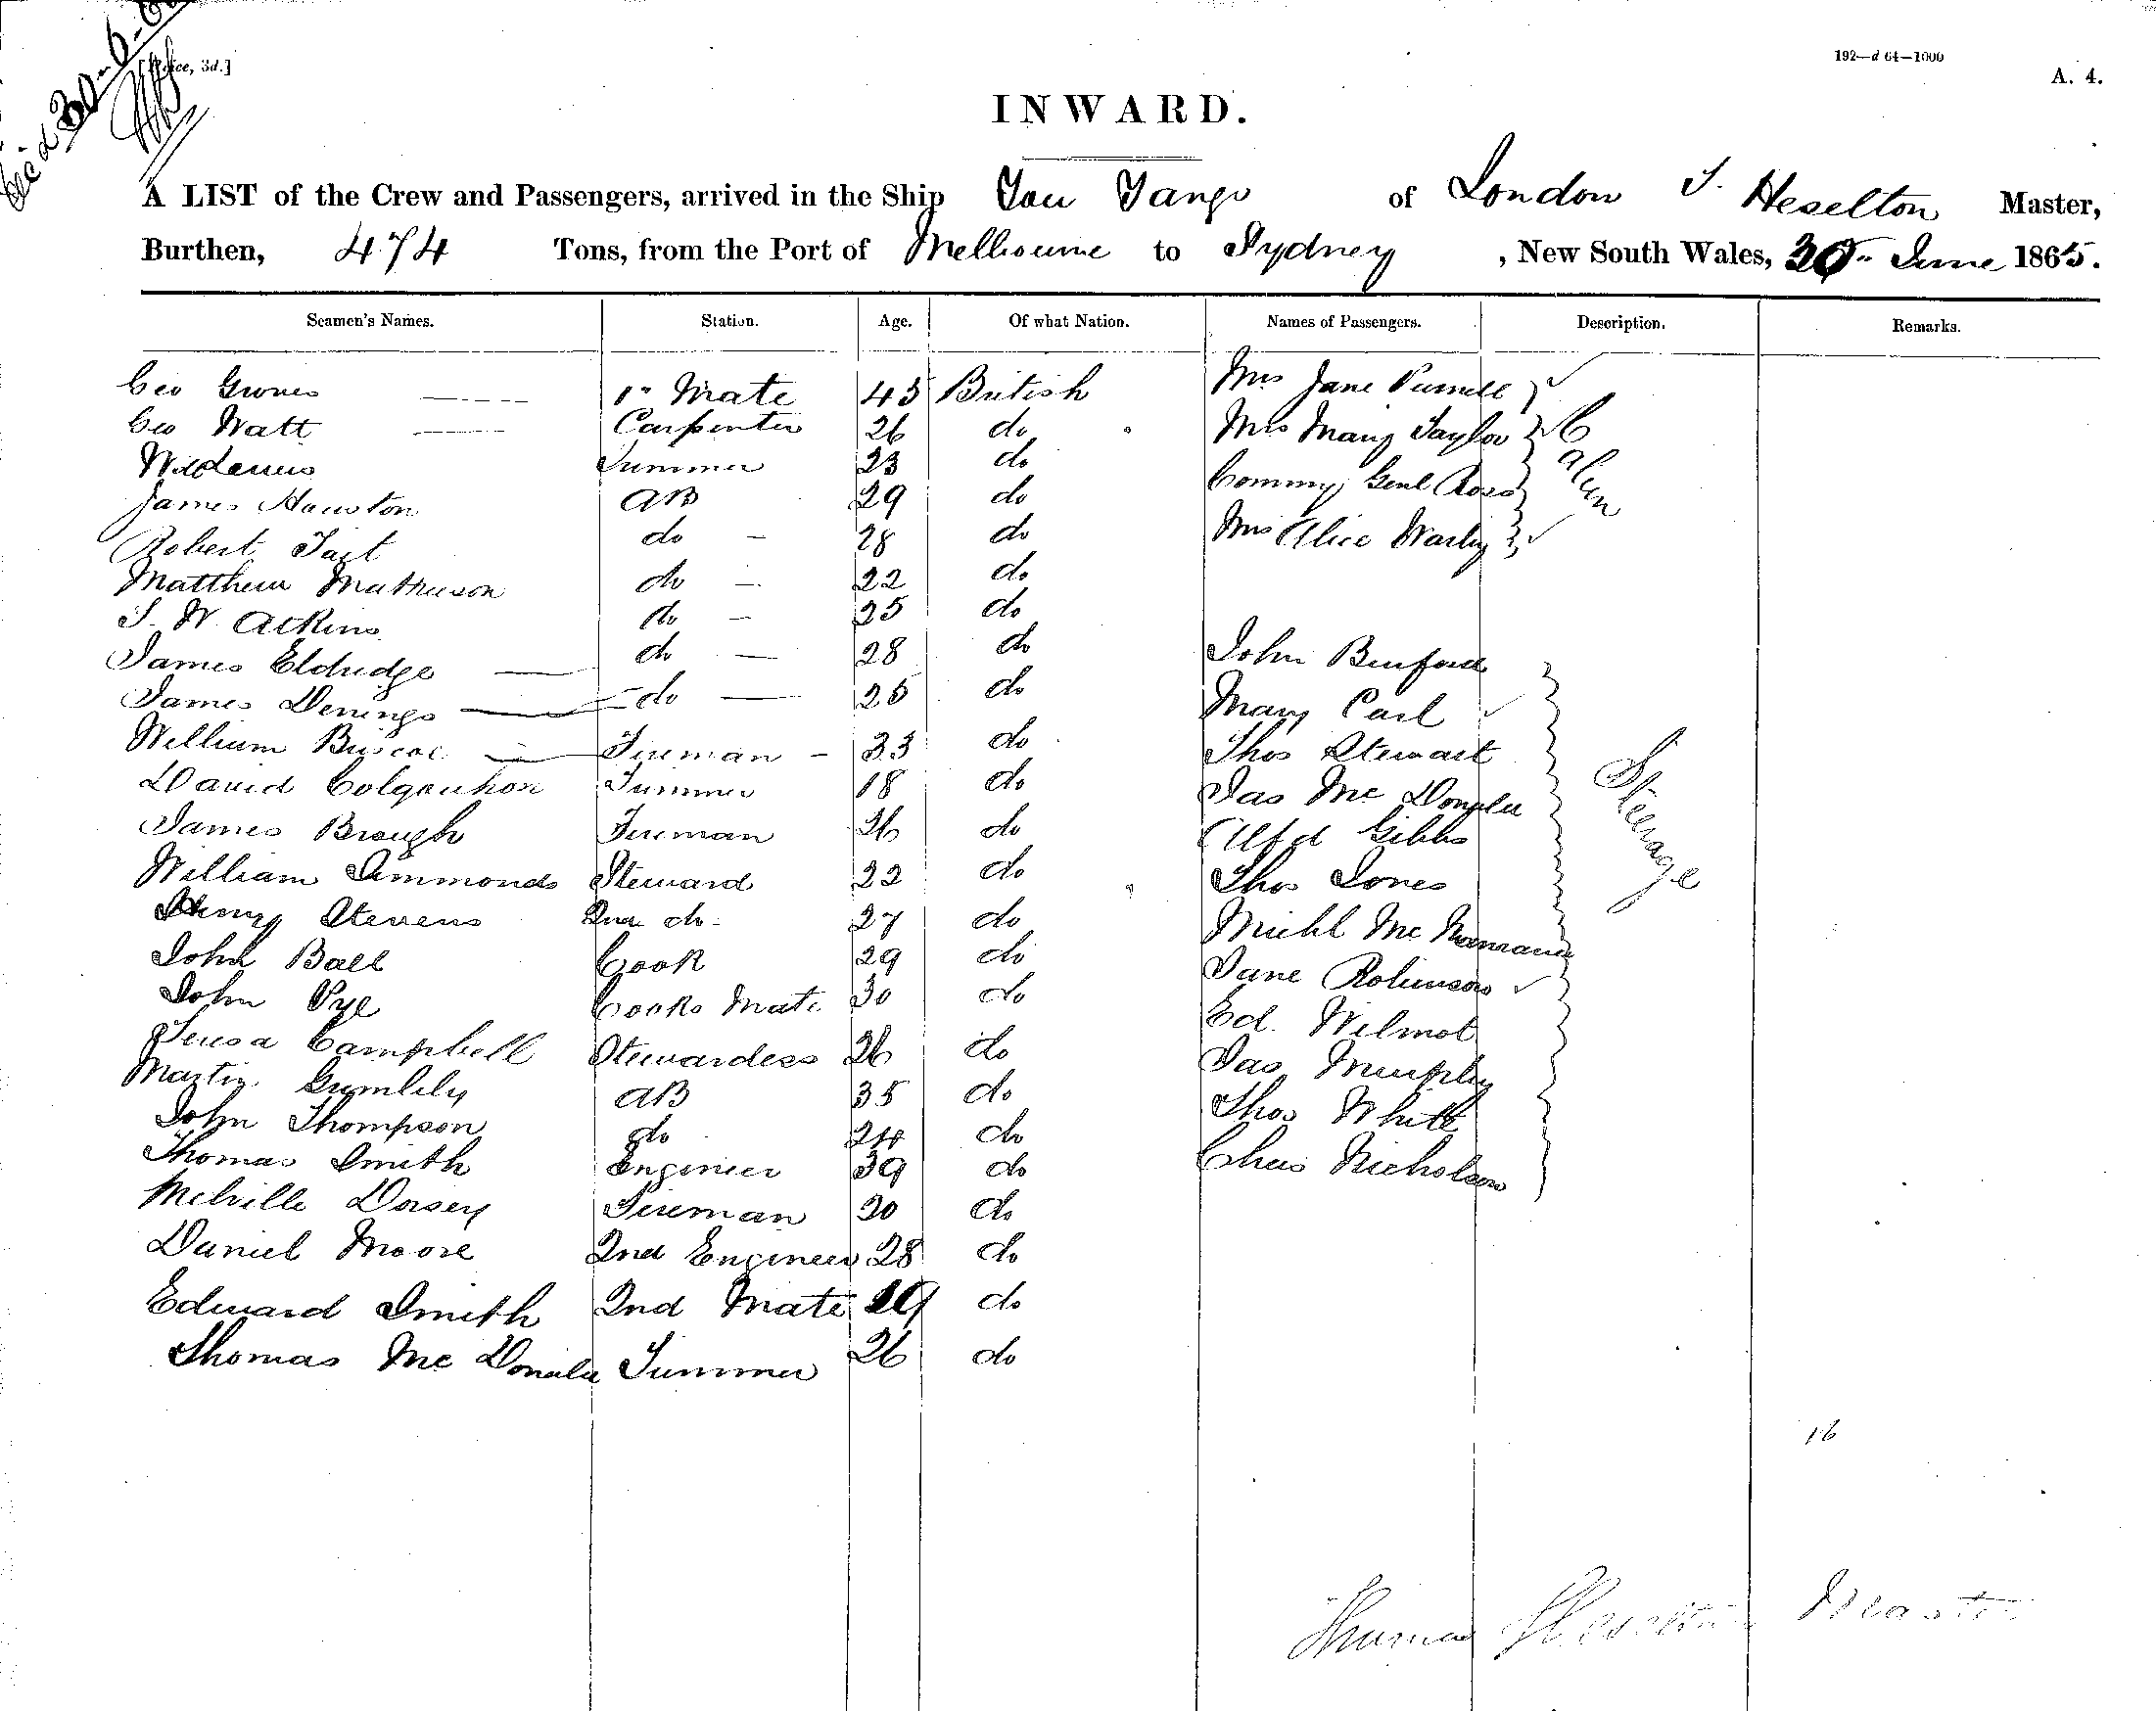 Rec'd 30-6-65
[Price, 3d.]
192—d 64—1000
A. 4.
INWARD.
A LIST of the Crew and Passengers, arrived in the Ship You Yangs of London T. Heselton Master,
Burthen, 474 Tons, from the Port of Melbourne to Sydney, New South Wales, 30th June 1865.
Seamen's Names. Station. Age. Of what Nation. Names of Passengers. Description. Remarks.
Geo 1st Mate 45 British Mrs Jane Purnell
Geo Watt Carpenter 26 do Mrs Mary Taylor Cabin
Trimmer 23 do Commy Genl Ross
James Houston AB 29 do
Robert Tait do 28 do Mrs Alice Warby
Matthew Mathieson do 22 do
T. W. Atkins do 25 do
James Eldridge do 28 do John Binford
James Denings do 25 do Mary Carl
William Briscoe Fireman 33 do Thos Stewart
David Colqouhon Trimmer 18 do Jas Mc Donald Steerage
James Brough Fireman 26 do Alfd Gibbs
William Simmonds Steward 22 do Thos Jones
Henry Stevens 2nd do 27 do Michl Mc Namara
John Ball Cook 29 do Jane Robinson
John Pye Cooks Mate 30 do Ed. Wilmot
Teresa Campbell Stewardess 26 do Jas Murphy
Martin Grumlily AB 35 do Thos White
John Thompson do 24 do Chas Nicholson
Thomas Smith Engineer 39 do
Melville Dorsey Fireman 30 do
Daniel Moore 2nd Engineer 28 do
Edward Smith 2nd Mate 29 do
Thomas Mc Donald Trimmer 26 do
16
Thomas Heselton Master